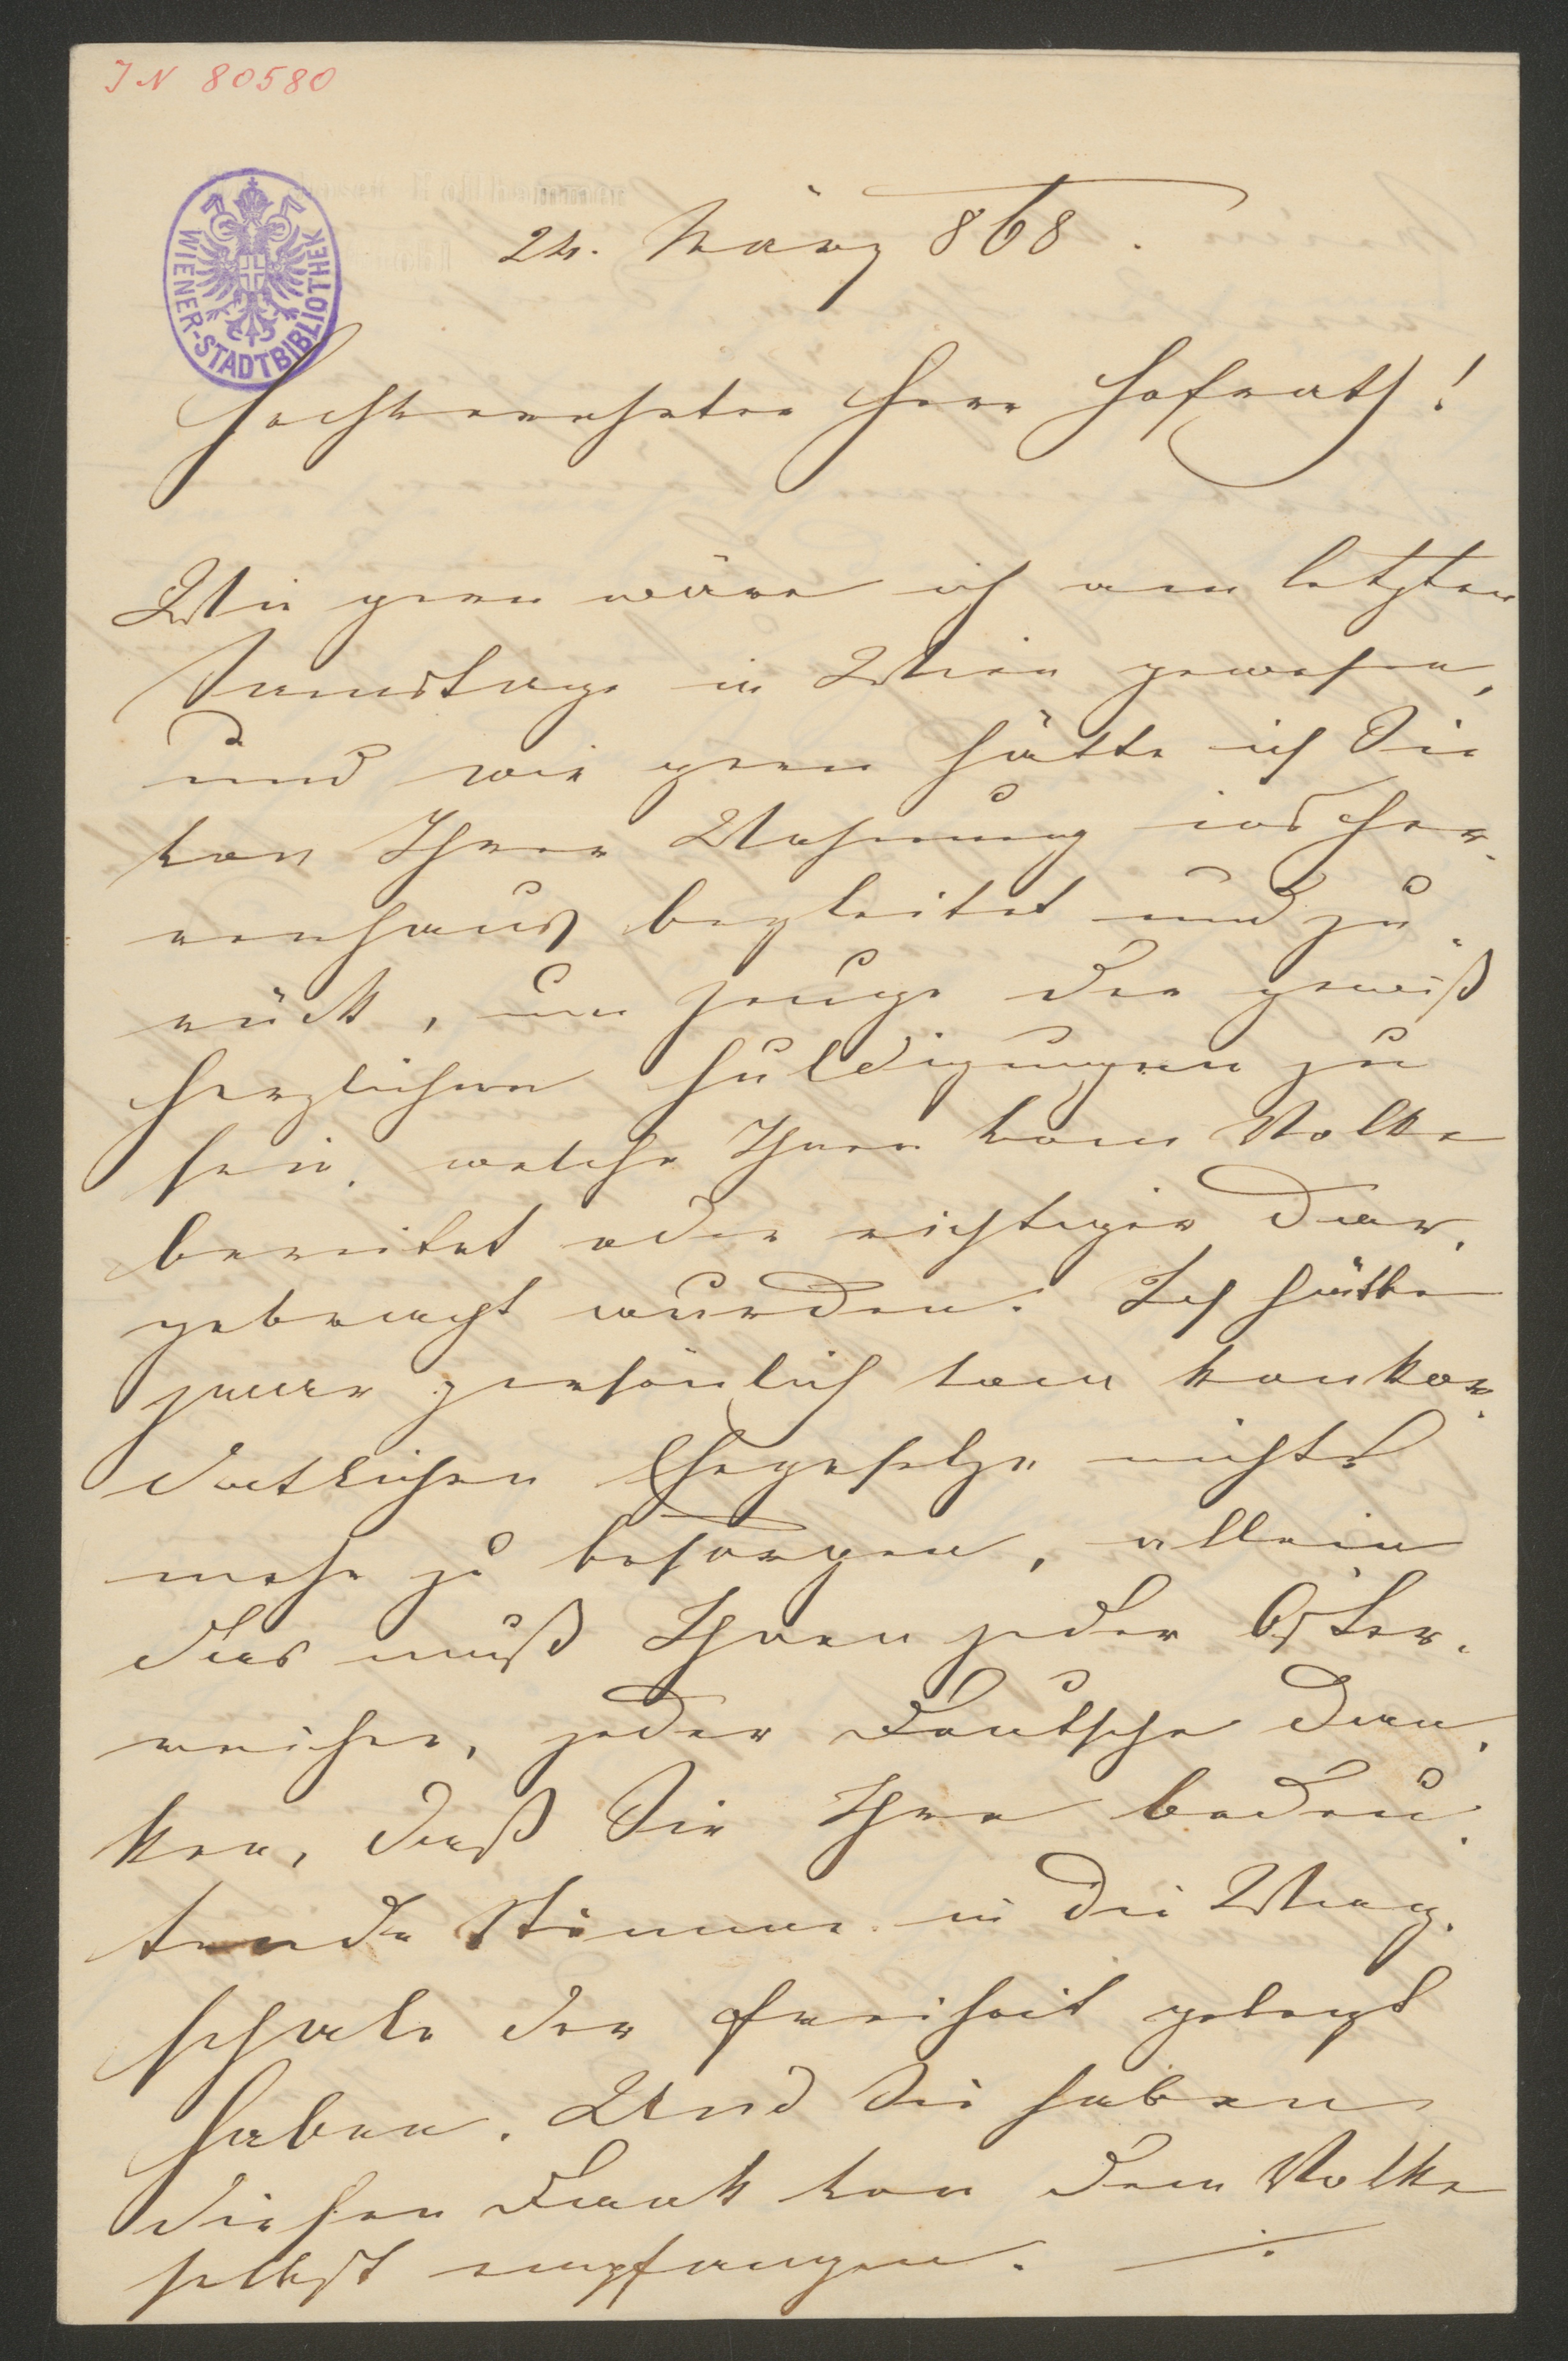 IN 80580
WIENER-STADTBIBLIOTHEK
24. März 868.
Hochverehrter Herr Hofrath!
Wie gern wäre ich am letzten
Samstage in Wien gewesen,
und wie gern hätte ich Sie
von Ihrer Wohnung ins Her-
renhaus begleitet und zu-
rück, um Zeuge der gewiß
herzlichen Huldigungen zu
sein, welche Ihnen vom Volke
bereitet oder richtiger dar-
gebracht wurden. Ich hätte
zwar persönlich vom konkor-
datlichen Ehegesetze nichts
mehr zu besorgen, allein
das muß Ihnen jeder Öster-
reicher, jeder Deutsche dan-
ken, daß Sie Ihre bedeu-
tende Stimme in die Wag-
schale der Freiheit gelegt
haben. Und Sie haben
diesen Dank von dem Volke
selbst empfangen. –